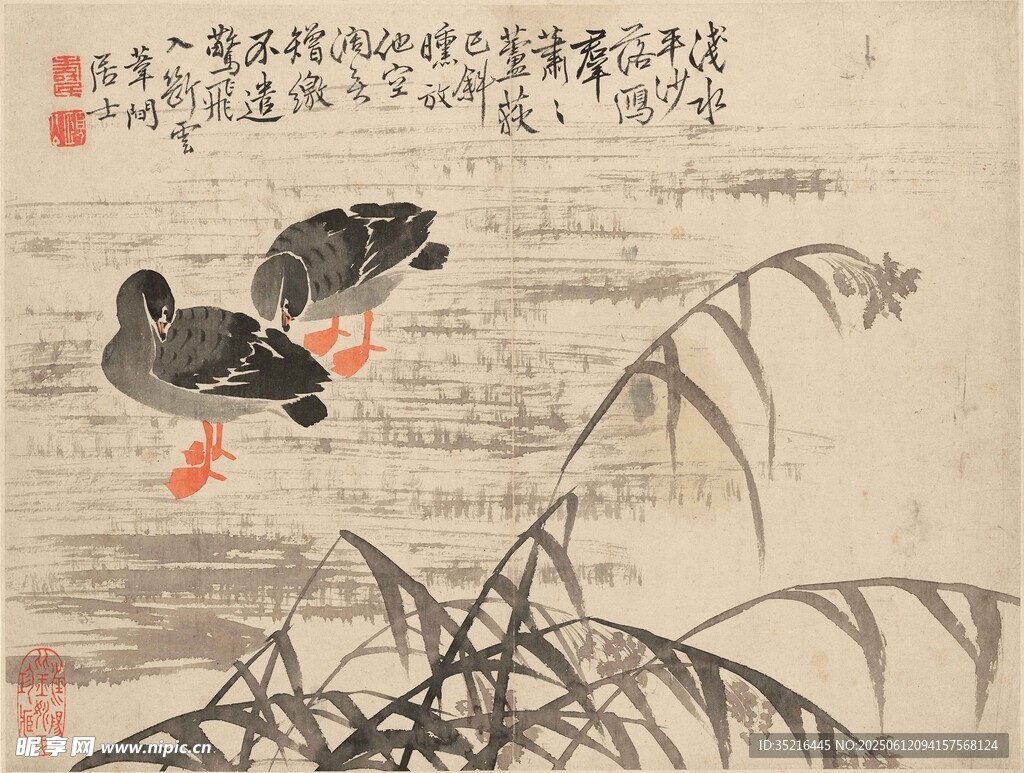 淺水
平沙
落鴈
羣
蕭〻
蘆荻
已斜
曛放
他空
阔無
矰繳
不遣
驚飛
入斷雲
葦間
居士
壽民
昵享网 www.nipic.cn
ID:35216445 NO:20250612094157568124